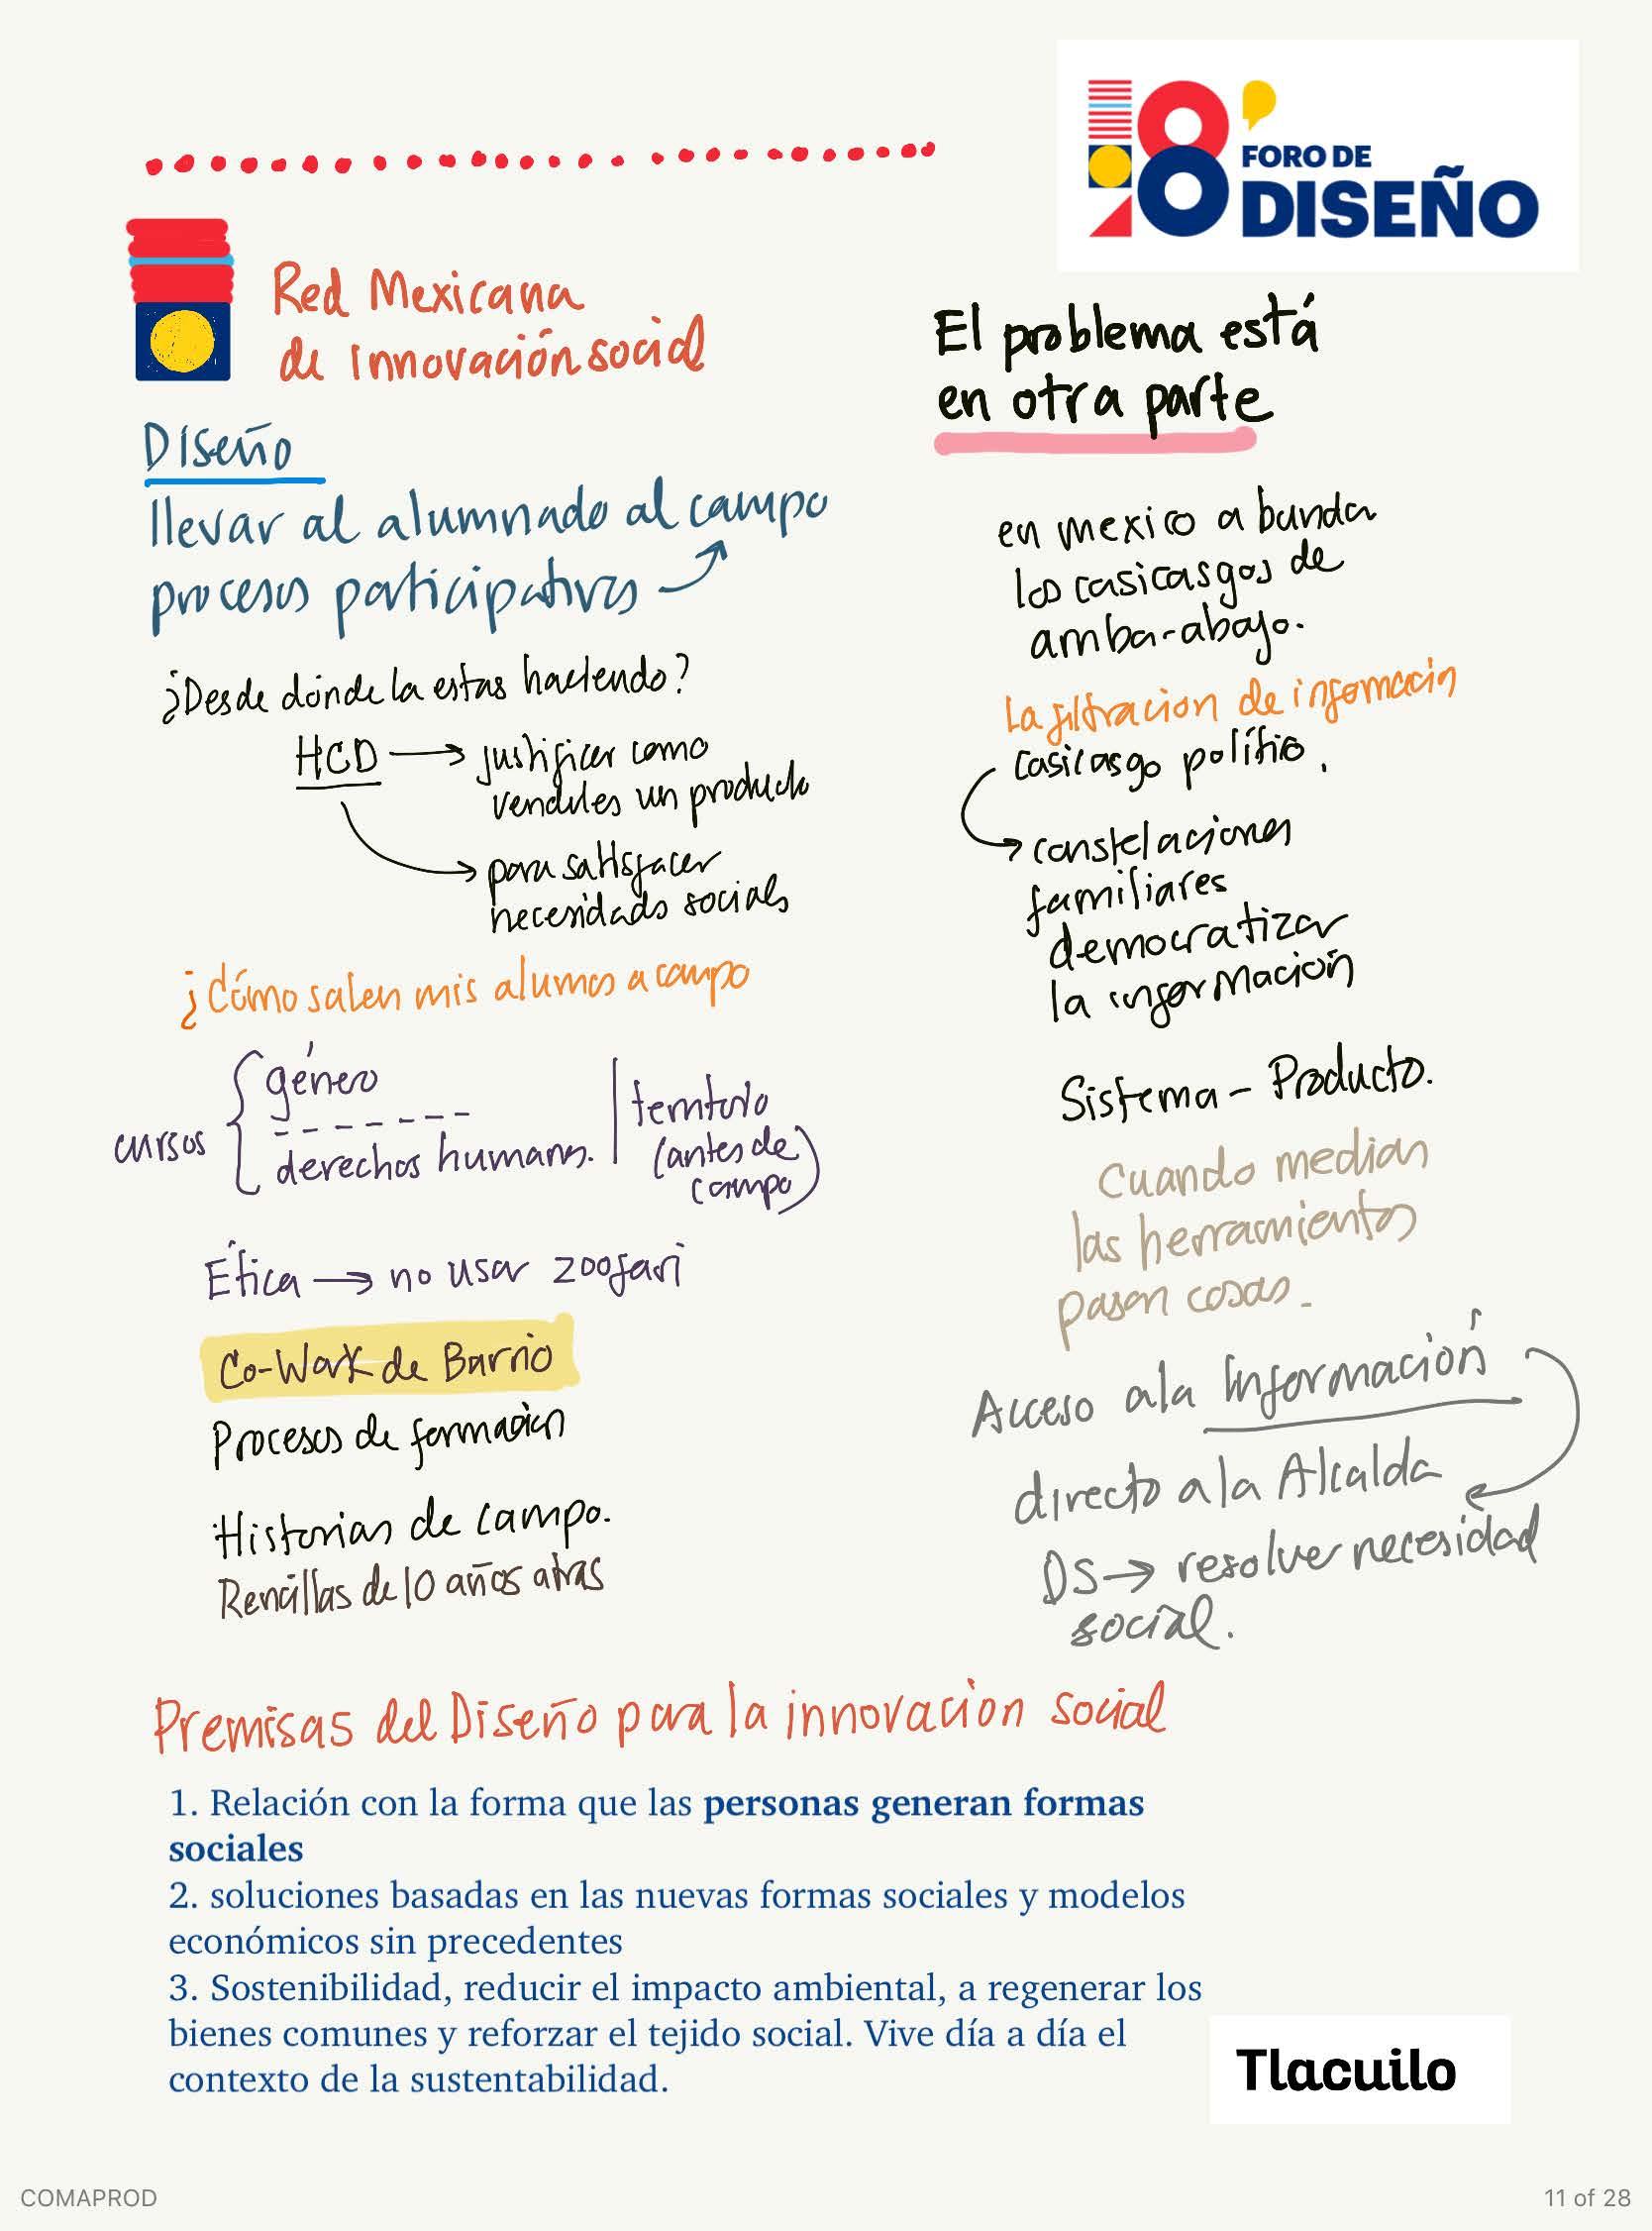 18'
FORO DE
DISEÑO
Red Mexicana
de Innovación social
Diseño
llevar al alumnado al campo
procesos participativos
¿Desde dónde la estas haciendo?
HCD → justificar como
vendiles un producto
para satisfacer
necesidades sociales
¿Cómo salen mis alumnos a campo
cursos
género
derechos humanos.
territorio
(antes de
campo)
Ética → no usar zoofari
Co-Work de Barrio
Procesos de formación
Historias de campo.
Rencillas de 10 años atras
El problema está
en otra parte
en mexico a bunda
los casicasgos de
arriba-abajo.
La filtracion de información
casicasgo político.
constelaciones
familiares
democratizar
la información
Sistema - Producto.
Cuando median
las herramientas
pasan cosas.
Acceso a la Información
directo a la Alcalda
DS → resolver necesidad
social.
Premisas del Diseño para la innovacion social
1. Relación con la forma que las personas generan formas
sociales
2. soluciones basadas en las nuevas formas sociales y modelos
económicos sin precedentes
3. Sostenibilidad, reducir el impacto ambiental, a regenerar los
bienes comunes y reforzar el tejido social. Vive día a día el
contexto de la sustentabilidad.
Tlacuilo
COMAPROD
11 of 28